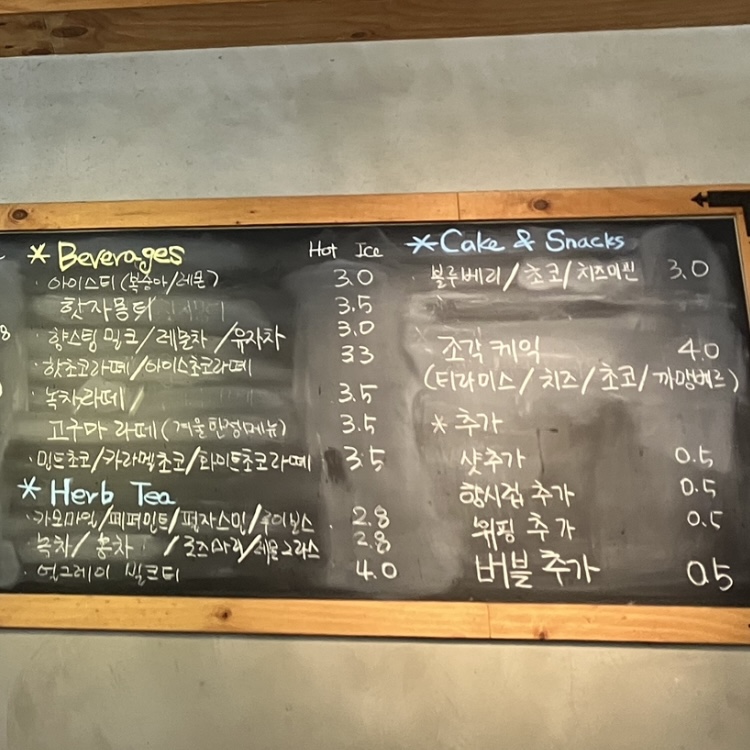 * Beverages Hot Ice
· 아이스티 (복숭아/레몬) 3.0
핫자몽티 3.5
· 향스팀 밀크/레몬차/유자차 3.0
· 핫초코라떼/아이스초코라떼 33
· 녹차라떼/ 3.5
고구마라떼 (겨울한정메뉴) 3.5
· 민트초코/카라멜초코/화이트초코라떼 3.5
* Herb Tea
· 카모마일/페퍼민트/펄자스민/루이보스 2.8
녹차/홍차 /로즈마리/레몬그라스 2.8
· 얼그레이 밀크티 4.0
* Cake & Snacks
블루베리/초코/치즈머핀 3.0
· 조각케익 4.0
(티라미스/치즈/초코/까망베르)
* 추가
샷추가 0.5
향시럽 추가 0.5
휘핑 추가 0.5
버블 추가 0.5